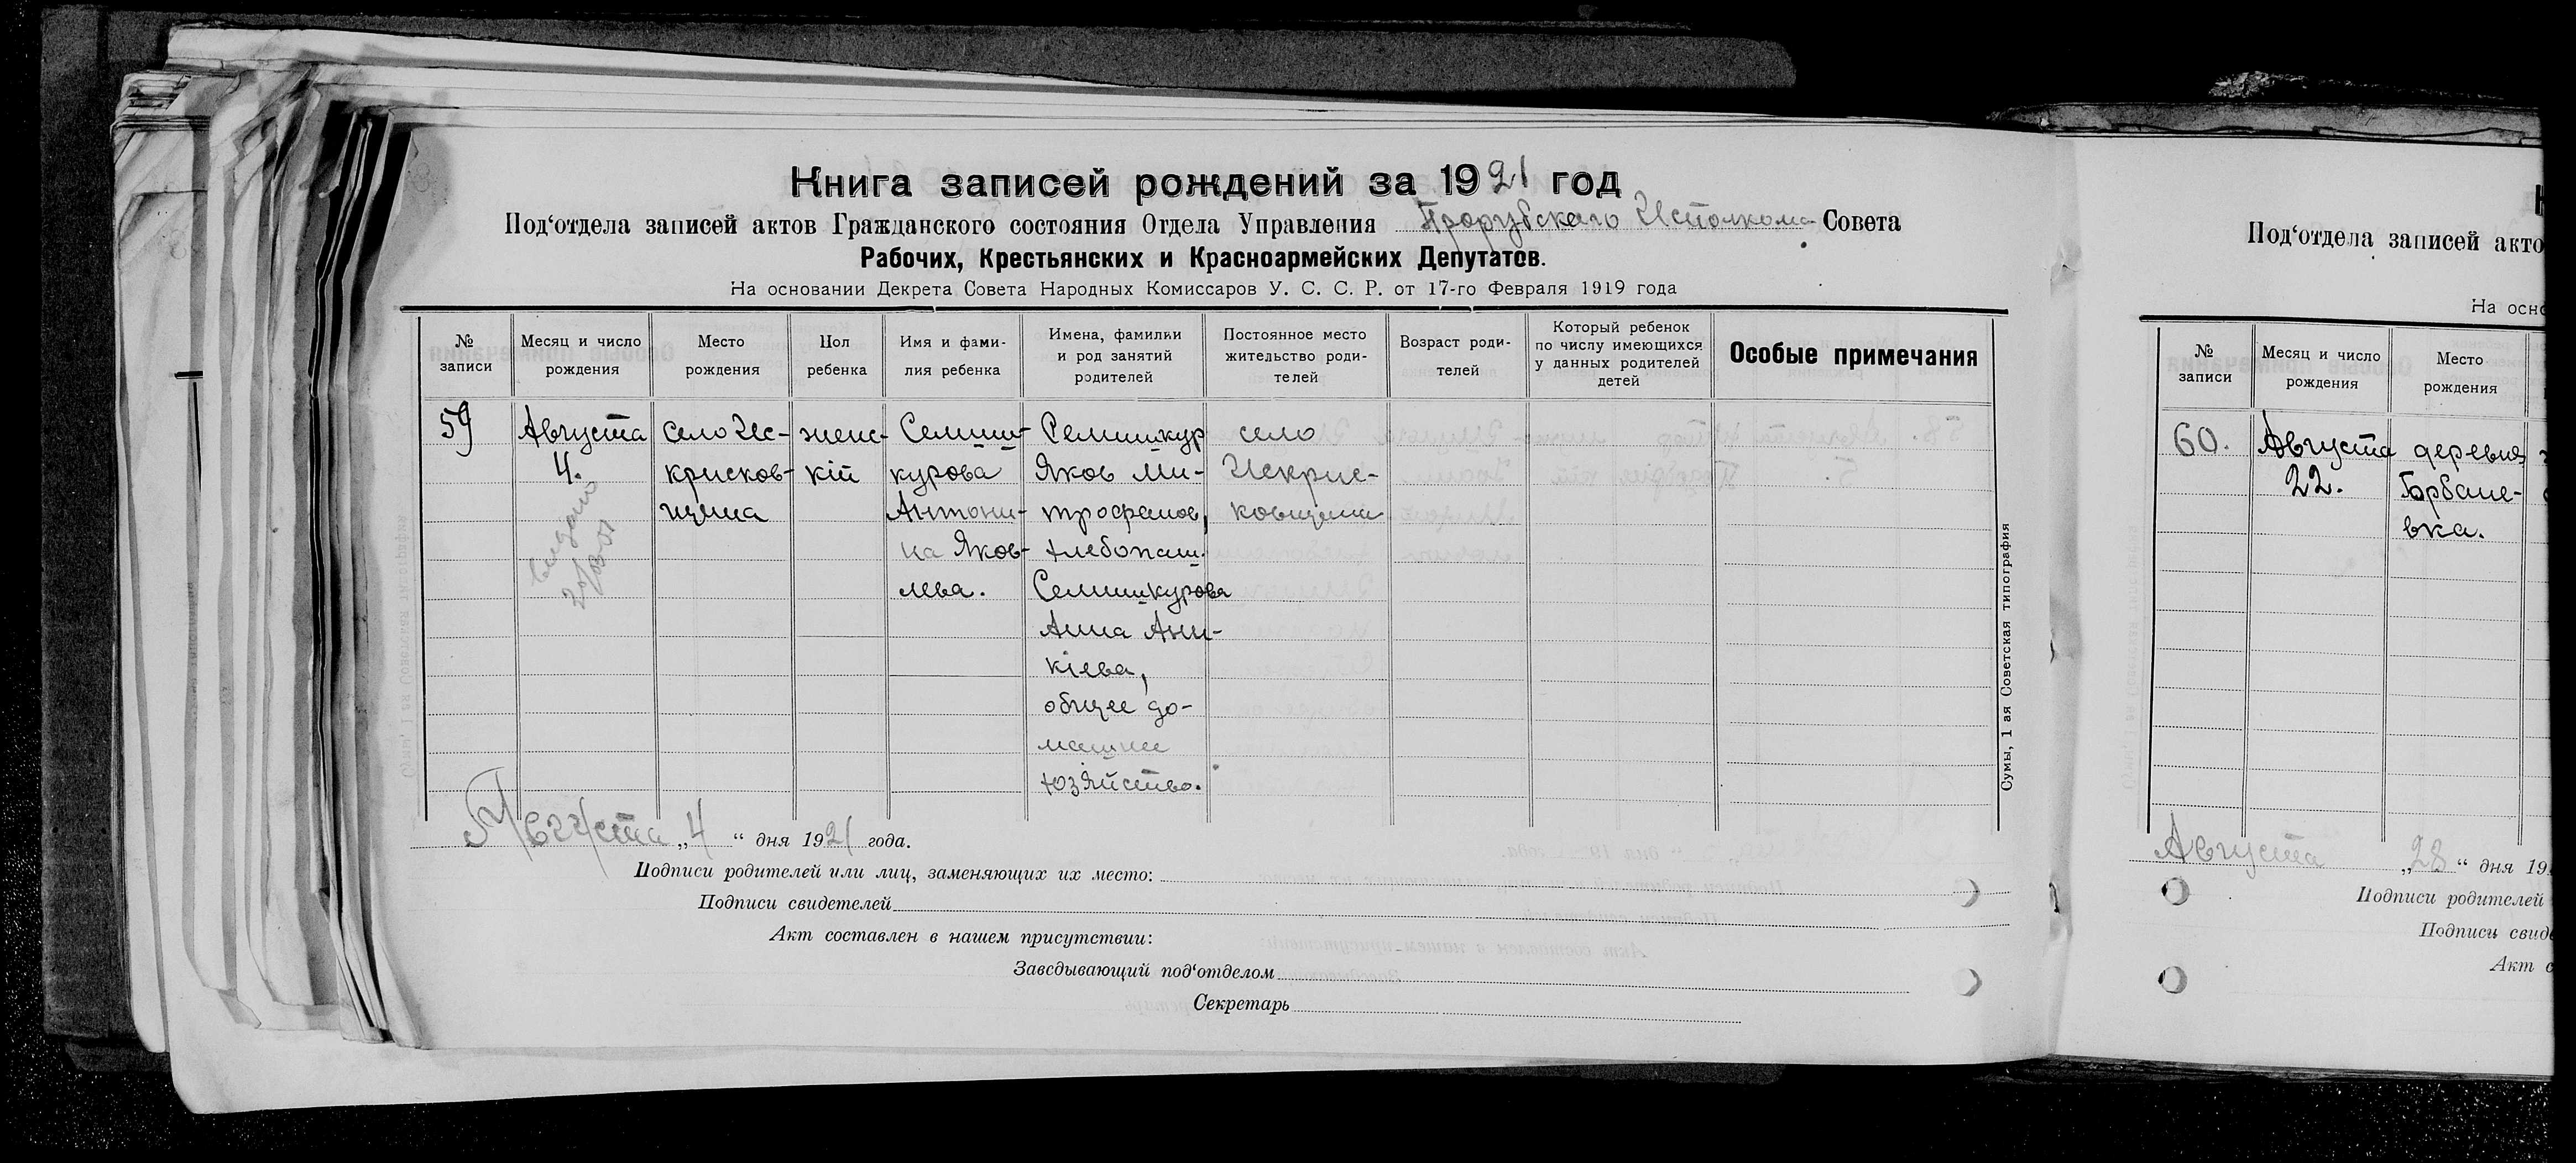 Книга записей рождений за 1921 год
Под‘отдела записей актов Гражданского состояния Отдела Управления Прорубского Исполкома Совета
Рабочих, Крестьянских и Красноармейских Депутатов.
На основании Декрета Совета Народных Комиссаров У. С. С. Р. от 17-го Февраля 1919 года
№
записи
Месяц и число
рождения
Место
рождения
Пол
ребенка
Имя и фами-
лия ребенка
Имена, фамилии
и род занятий
родителей
Постоянное место
жительство роди-
телей
Возраст роди-
телей
Который ребенок
по числу имеющихся
у данных родителей
детей
Особые примечания
59
Августа
4.
село Ис-
крисков-
щина
женс-
кій
Семиш-
курова
Антони-
на Яков-
лева.
Семишкур
Яков Ми-
трофанов,
хлебопаш.
Семишкурова
Анна Ани-
кіева,
общее до-
машнее
хозяйство.
село
Искрис-
ковщина
Августа „4“ дня 1921 года.
Подписи родителей или лиц, заменяющих их место:
Подписи свидетелей
Акт составлен в нашем присутствии:
Заведывающий под‘отделом
Секретарь
Сумы, 1 ая Советская типография
Под‘отдела записей акто
На осно
№
записи
Месяц и число
рождения
Место
рождения
60.
Августа
22.
деревня
Горбане-
вка.
Августа „28“ дня 19
Подписи родителей
Подписи свиде
Акт с